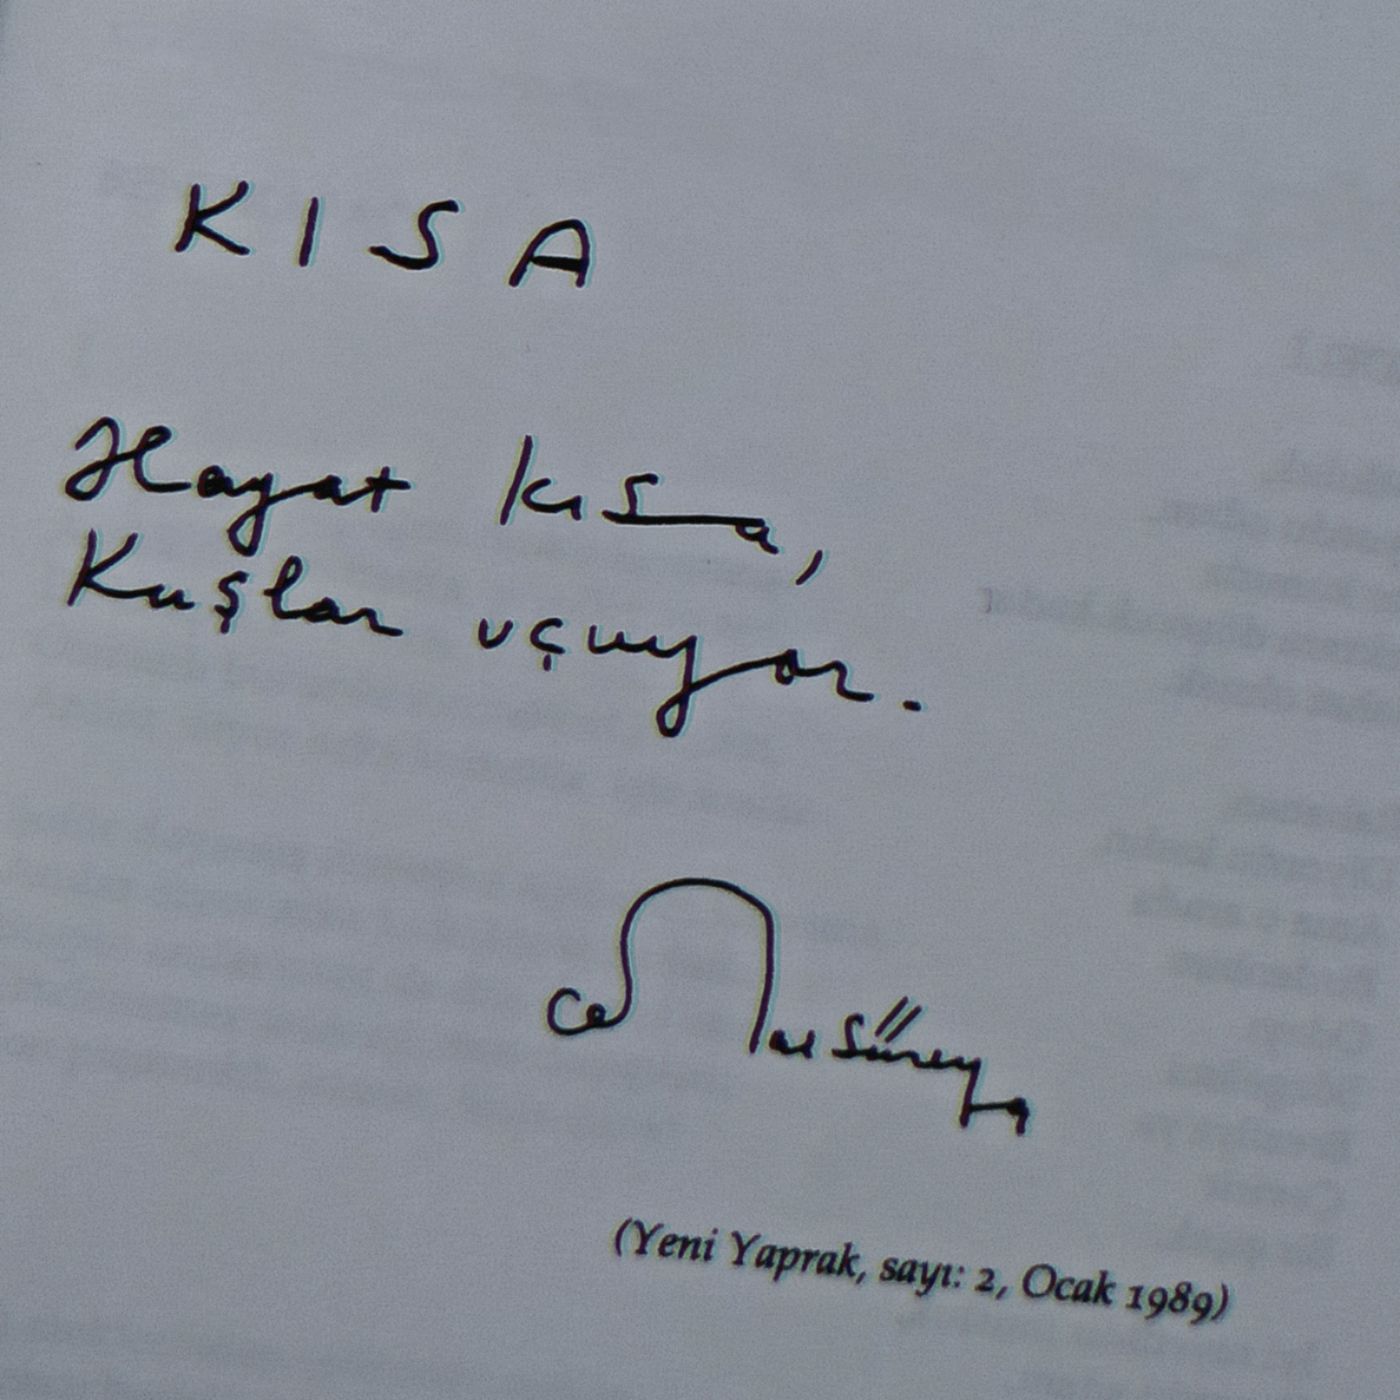 KISA
Hayat kısa,
Kuşlar uçuyor.
Cemal Süreya
(Yeni Yaprak, sayı: 2, Ocak 1989)